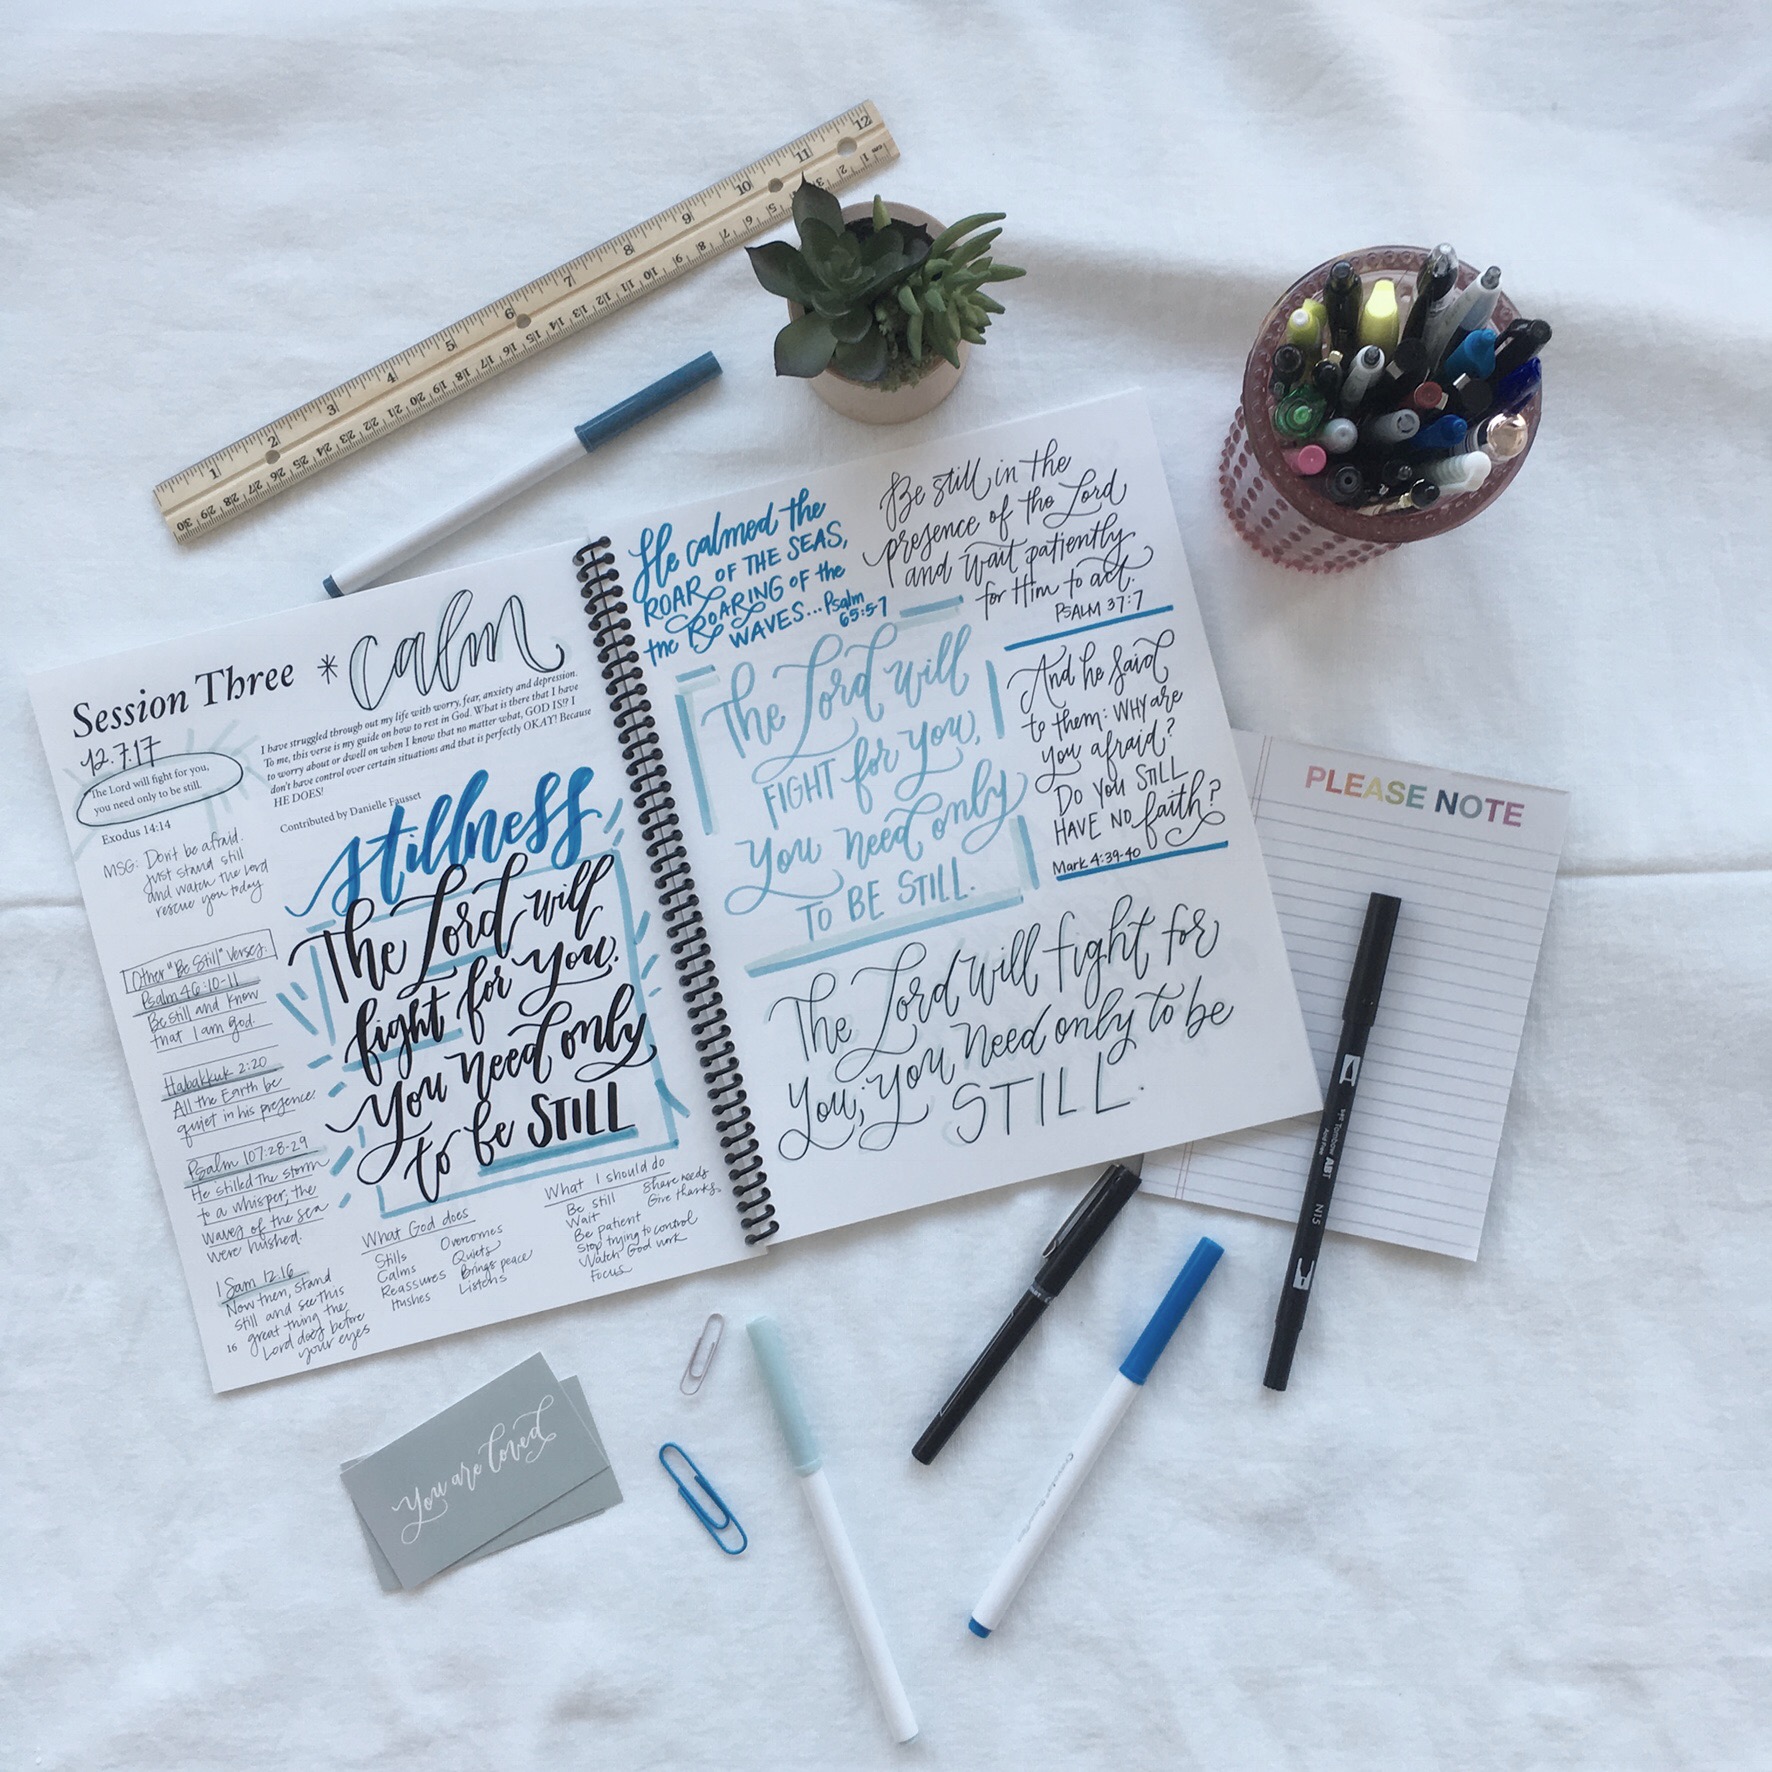 Session Three
*calm
12.7.17
The Lord will fight for you,
you need only to be still.
Exodus 14:14
I have struggled through out my life with worry, fear, anxiety and depression.
To me, this verse is my guide on how to rest in God. What is there that I have
to worry about or dwell on when I know that no matter what, GOD IS!? I
don't have control over certain situations and that is perfectly OKAY! Because
HE DOES!
Contributed by Danielle Fausset
MSG: Don't be afraid.
Just stand still
and watch the Lord
rescue you today
stillness
The Lord will
fight for you.
You need only
to be STILL
Other "Be Still" Verses:
Psalm 46:10-11
Be still and know
that I am God.
Habakkuk 2:20
All the Earth be
quiet in his presence.
Psalm 107:28-29
He stilled the storm
to a whisper; the
waves of the sea
were hushed.
1 Sam 12:16
Now then, stand
still and see this
great thing the
Lord does before
your eyes
16
What God does
Stills
Calms
Reassures
Hushes
Overcomes
Quiets
Brings peace
Listens
What I should do
Be still
Wait
Be patient
Stop trying to control
Watch God work
Focus
Share needs
Give thanks
He calmed the
ROAR OF THE SEAS,
the ROARING OF the
WAVES... Psalm
65:5-7
Be still in the
presence of the Lord
and wait patiently
for Him to act.
PSALM 37:7
The Lord will
FIGHT for you,
You need only
TO BE STILL.
And he said
to them: WHY are
you afraid?
Do You STILL
HAVE NO faith?
Mark 4:39-40
The Lord will fight for
You; you need only to be
STILL.
PLEASE NOTE
Tombow ABT
N15
You are loved
1 2 3 4 5 6 7 8 9 10 11 12